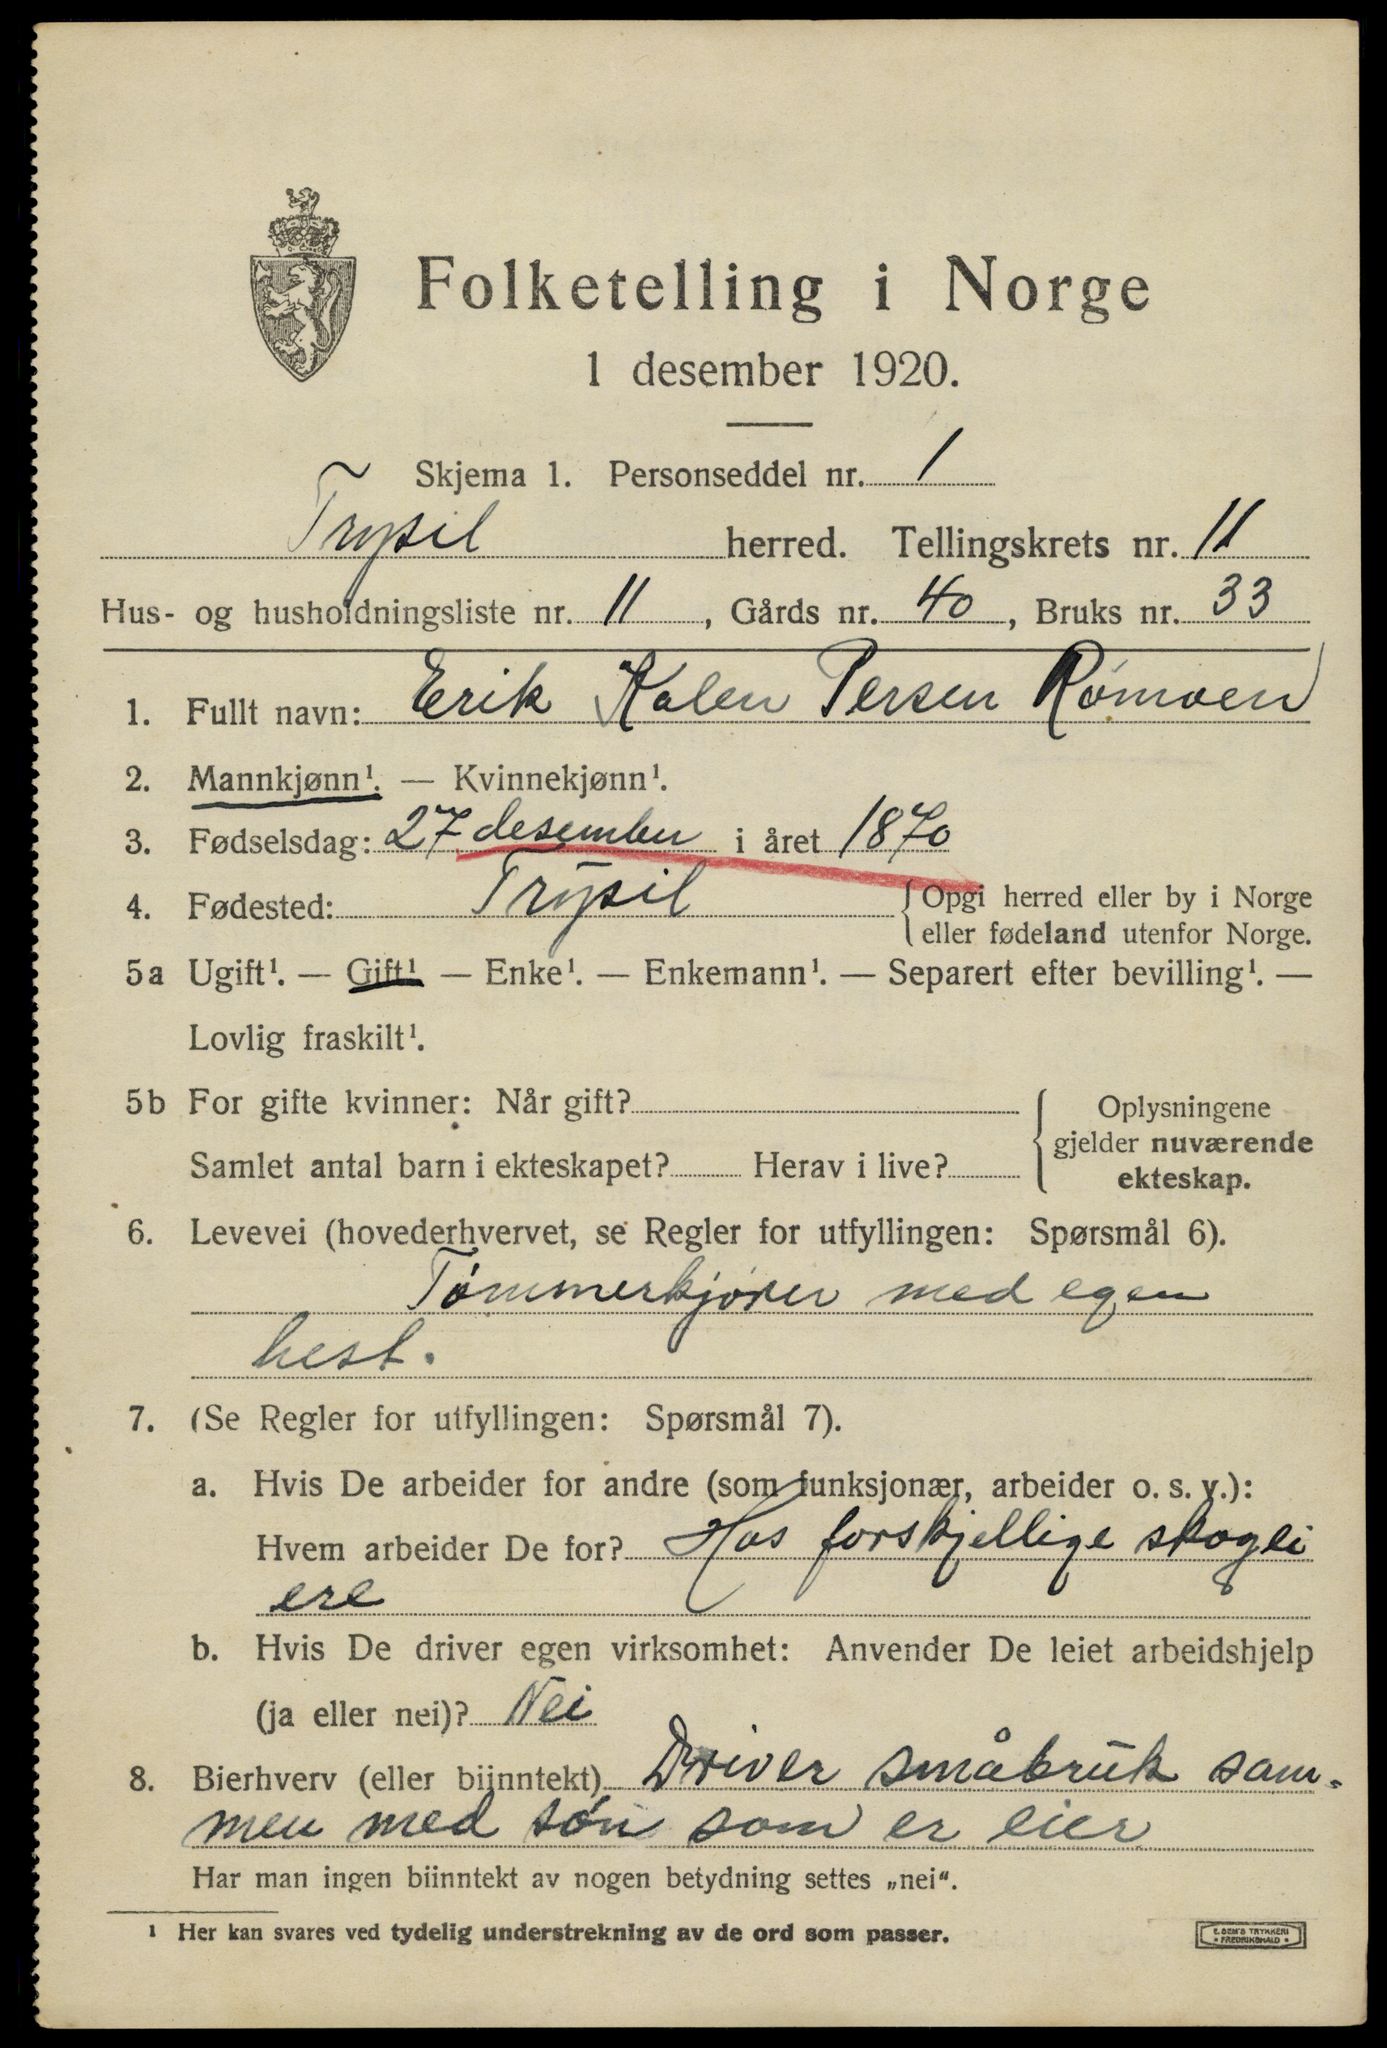 Folketelling i Norge
1 desember 1920.
Skjema 1. Personseddel nr. 1
Trysil herred. Tellingskrets nr. 11
Hus- og husholdningsliste nr. 11, Gårds nr. 40, Bruks nr. 33
1. Fullt navn: Erik Kalen Persen Rømoen
2. Mannkjønn¹. — Kvinnekjønn¹.
3. Fødselsdag: 27 desember i året 1870
4. Fødested: Trysil {Opgi herred eller by i Norge
eller fødeland utenfor Norge.
5a Ugift¹. — Gift¹ — Enke¹. — Enkemann¹. — Separert efter bevilling¹. —
Lovlig fraskilt¹.
5b For gifte kvinner: Når gift? { Oplysningene
gjelder nuværende
Samlet antal barn i ekteskapet? Herav i live? ekteskap.
6. Levevei (hovederhvervet, se Regler for utfyllingen: Spørsmål 6).
Tømmerkjører med egen
hest.
7. (Se Regler for utfyllingen: Spørsmål 7).
a. Hvis De arbeider for andre (som funksjonær, arbeider o. s. v.):
Hvem arbeider De for? Hos forskjellige skogei
ere
b. Hvis De driver egen virksomhet: Anvender De leiet arbeidshjelp
(ja eller nei)? Nei
8. Bierhverv (eller biinntekt) Driver småbruk sam-
men med søn som er eier
Har man ingen biinntekt av nogen betydning settes „nei“.
¹ Her kan svares ved tydelig understrekning av de ord som passer.
E. SEM'S TRYKKERI
• FREDRIKSHALD •